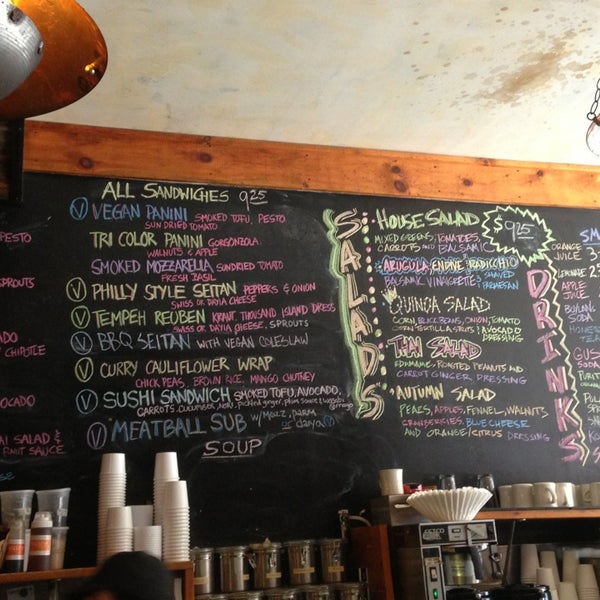 PESTO
SPROUTS
ADO
CHIPOTLE
VOCADO
AI SALAD &
NUT SAUCE
ALL SANDWICHES 9.25
V VEGAN PANINI SMOKED TOFU, PESTO
SUN DRIED TOMATO
TRI COLOR PANINI GORGONZOLA
WALNUTS & APPLE
SMOKED MOZZARELLA SUNDRIED TOMATO
FRESH BASIL
V PHILLY STYLE SEITAN PEPPERS & ONION
SWISS OR DAYIA CHEESE
V TEMPEH REUBEN KRAUT, THOUSAND ISLAND DRESS
SWISS OR DAYIA CHEESE, SPROUTS
V BBQ SEITAN WITH VEGAN COLESLAW
V CURRY CAULIFLOWER WRAP
CHICK PEAS, BROWN RICE, MANGO CHUTNEY
V SUSHI SANDWICH SMOKED TOFU, AVOCADO,
CARROTS, CUCUMBER, NORI, pickled ginger, plum sauce & wasabi
mayo
V MEATBALL SUB W/ MOZZ, PARM
OR daya V
SOUP
SALADS
$9.25
HOUSE SALAD
MIXED GREENS, TOMATOES,
CARROTS AND BALSAMIC
ARUGULA, ENDIVE, RADICCHIO
BALSAMIC VINAIGRETTE, SHAVED
PARMESAN
QUINOA SALAD
CORN, BLACK BEANS, ONION, TOMATO
CORN TORTILLA STRIPS & AVOCADO
DRESSING
THAI SALAD
EDAMAME, ROASTED PEANUTS AND
CARROT GINGER, DRESSING
AUTUMN SALAD
PEARS, APPLES, FENNEL, WALNUTS
CRANBERRIES, BLUE CHEESE
AND ORANGE/CITRUS DRESSING
DRINKS
SM
ORANGE
JUICE 3
LEMONADE 2
APPLE
JUICE
BOYLAN
SODA
HOME
TEA
GUS
SODA